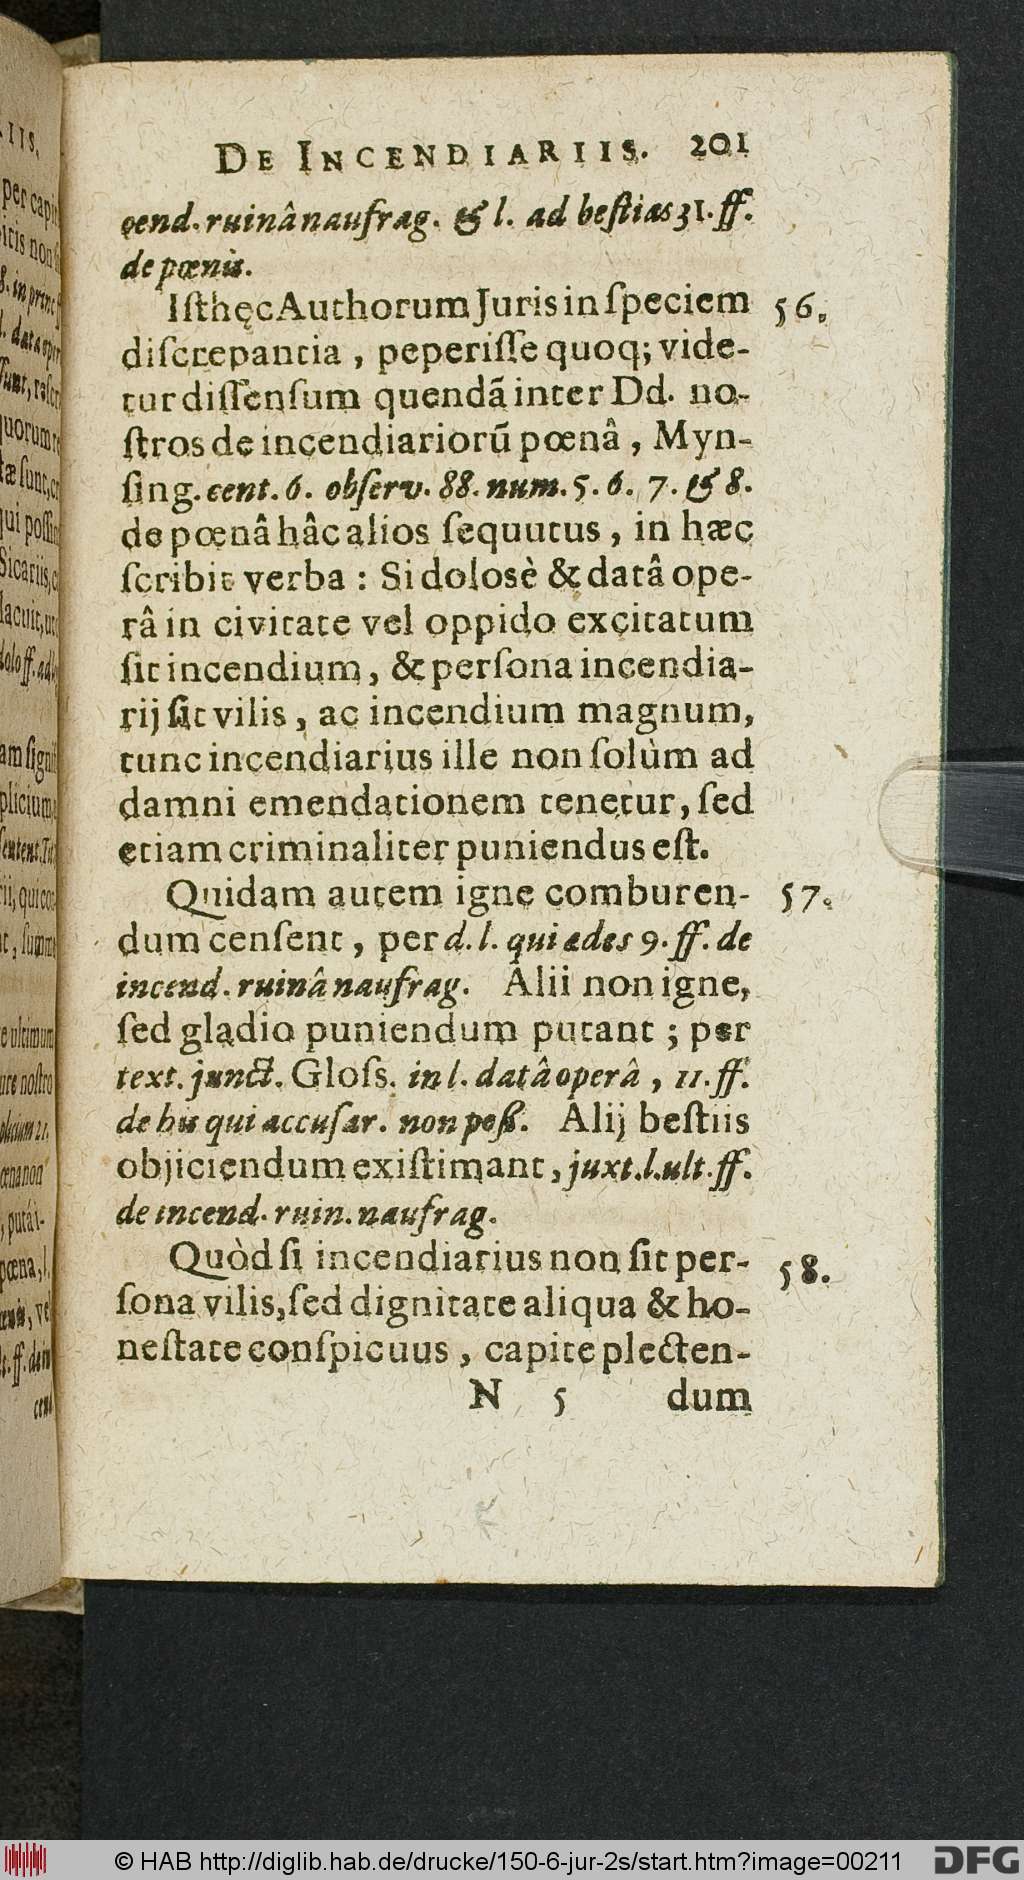 DE INCENDIARIIS. 201
cend. ruinâ naufrag. & l. ad beſtias 31. ff.
de pœnis.
Iſthęc Authorum Juris in ſpeciem 56.
diſcrepantia, peperiſſe quoq; vide-
tur diſſenſum quendã inter Dd. no-
ſtros de incendiariorũ pœnâ, Myn-
ſing. cent. 6. obſerv. 88. num. 5. 6. 7. & 8.
de pœnâ hâc alios ſequutus, in hæc
ſcribit verba: Si dolosè & datâ ope-
râ in civitate vel oppido excitatum
ſit incendium, & perſona incendia-
rij ſit vilis, ac incendium magnum,
tunc incendiarius ille non ſolùm ad
damni emendationem tenetur, ſed
etiam criminaliter puniendus eſt.
Quidam autem igne comburen- 57.
dum cenſent, per d. l. qui ædes 9. ff. de
incend. ruinâ naufrag. Alii non igne,
ſed gladio puniendum putant; per
text. junct. Gloſs. in l. datâ operâ, 11. ff.
de his qui accuſar. non poſſ. Alij beſtiis
objiciendum exiſtimant, juxt. l. ult. ff.
de incend. ruin. naufrag.
Quòd ſi incendiarius non ſit per- 58.
ſona vilis, ſed dignitate aliqua & ho-
neſtate conſpicuus, capite plecten-
N 5 dum
© HAB http://diglib.hab.de/drucke/150-6-jur-2s/start.htm?image=00211 DFG